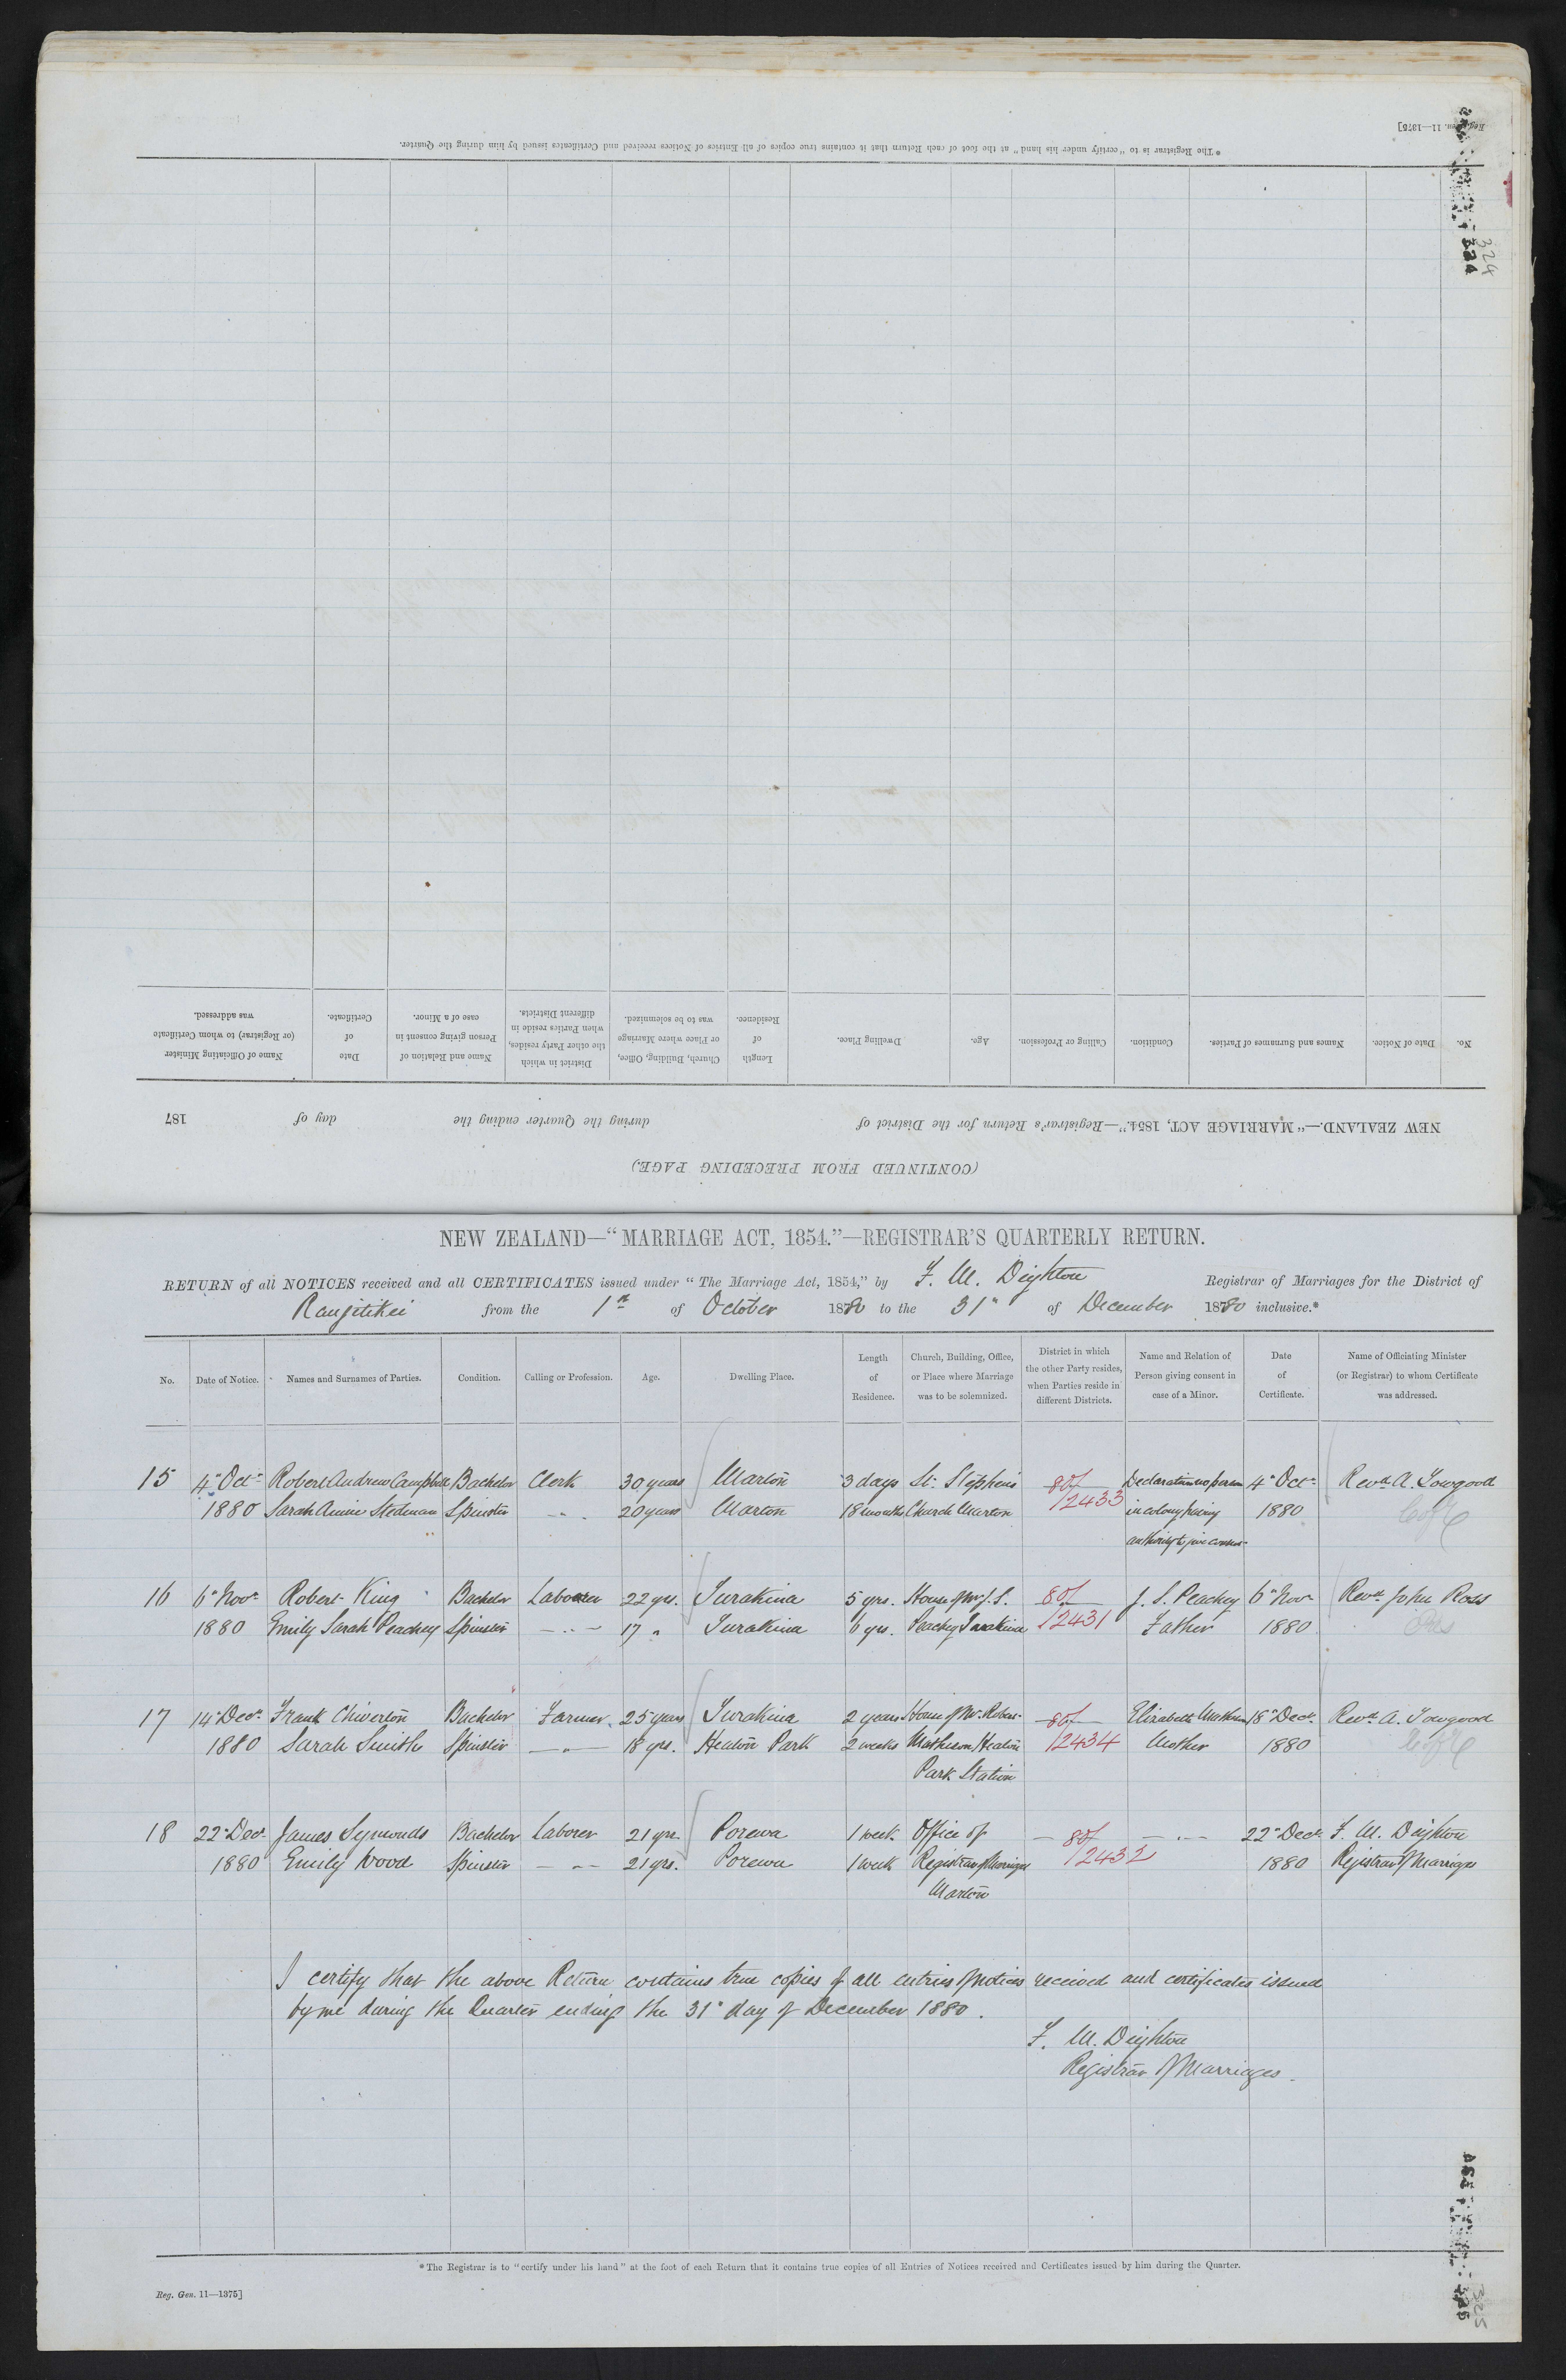 Reg. Gen. 11—1375]
* The Registrar is to "certify under his hand" at the foot of each Return that it contains true copies of all Entries of Notices received and Certificates issued by him during the Quarter.
324
324
No. Date of Notice. Names and Surnames of Parties. Condition. Calling or Profession. Age. Dwelling Place. Length of Residence. Church, Building, Office, or Place where Marriage was to be solemnized. District in which the other Party resides, when Parties reside in different Districts. Name and Relation of Person giving consent in case of a Minor. Date of Certificate. Name of Officiating Minister (or Registrar) to whom Certificate was addressed.
NEW ZEALAND.—"MARRIAGE ACT, 1854."—Registrar's Return for the District of during the Quarter ending the day of 187
(CONTINUED FROM PRECEDING PAGE.)
NEW ZEALAND—"MARRIAGE ACT, 1854."—REGISTRAR'S QUARTERLY RETURN.
RETURN of all NOTICES received and all CERTIFICATES issued under "The Marriage Act, 1854," by F. M. Deighton Registrar of Marriages for the District of
Rangitikei from the 1st of October 1880 to the 31st of December 1880 inclusive.*
No. Date of Notice. Names and Surnames of Parties. Condition. Calling or Profession. Age. Dwelling Place. Length of Residence. Church, Building, Office, or Place where Marriage was to be solemnized. District in which the other Party resides, when Parties reside in different Districts. Name and Relation of Person giving consent in case of a Minor. Date of Certificate. Name of Officiating Minister (or Registrar) to whom Certificate was addressed.
15 4" Octr Robert Andrew Campbell Bachelor Clerk 30 years Marton 3 days St. Stephens 80/ Declaration no person 4" Octr Revd A. Towgood
1880 Sarah Annie Stedman Spinster — " — 20 years Marton 18 months Church Marton /2433 in colony having 1880 C of E
authority to give consent
16 6" Novr Robert King Bachelor Laborer 22 yrs. Turakina 5 yrs. House of Mr J. S. 80/ J. S. Peachey 6" Novr Revd John Ross
1880 Emily Sarah Peachey Spinster — " — 17 " Turakina 6 yrs. Peachey Turakina /2431 Father 1880 Pres
17 14" Decr Frank Chiverton Bachelor Farmer 25 years Turakina 2 years House of Mr. Robert 80/ Elizabeth 18" Decr Revd A. Towgood
1880 Sarah Smith Spinster — " — 18 yrs. Heaton Park 2 weeks Mathieson Heaton /2434 Mother 1880 C of E
Park Station
18 22" Decr James Symonds Bachelor Laborer 21 yrs. Porewa 1 week Office of — 80/ — " — 22" Decr F. M. Deighton
1880 Emily Wood Spinster — " — 21 yrs. Porewa 1 week Registrar of Marriages /2432 1880 Registrar of Marriages
Marton
I certify that the above Return contains true copies of all entries of notices received and certificates issued
by me during the Quarter ending the 31" day of December 1880.
F. M. Deighton
Registrar of Marriages.
* The Registrar is to "certify under his hand" at the foot of each Return that it contains true copies of all Entries of Notices received and Certificates issued by him during the Quarter.
Reg. Gen. 11—1375]
325